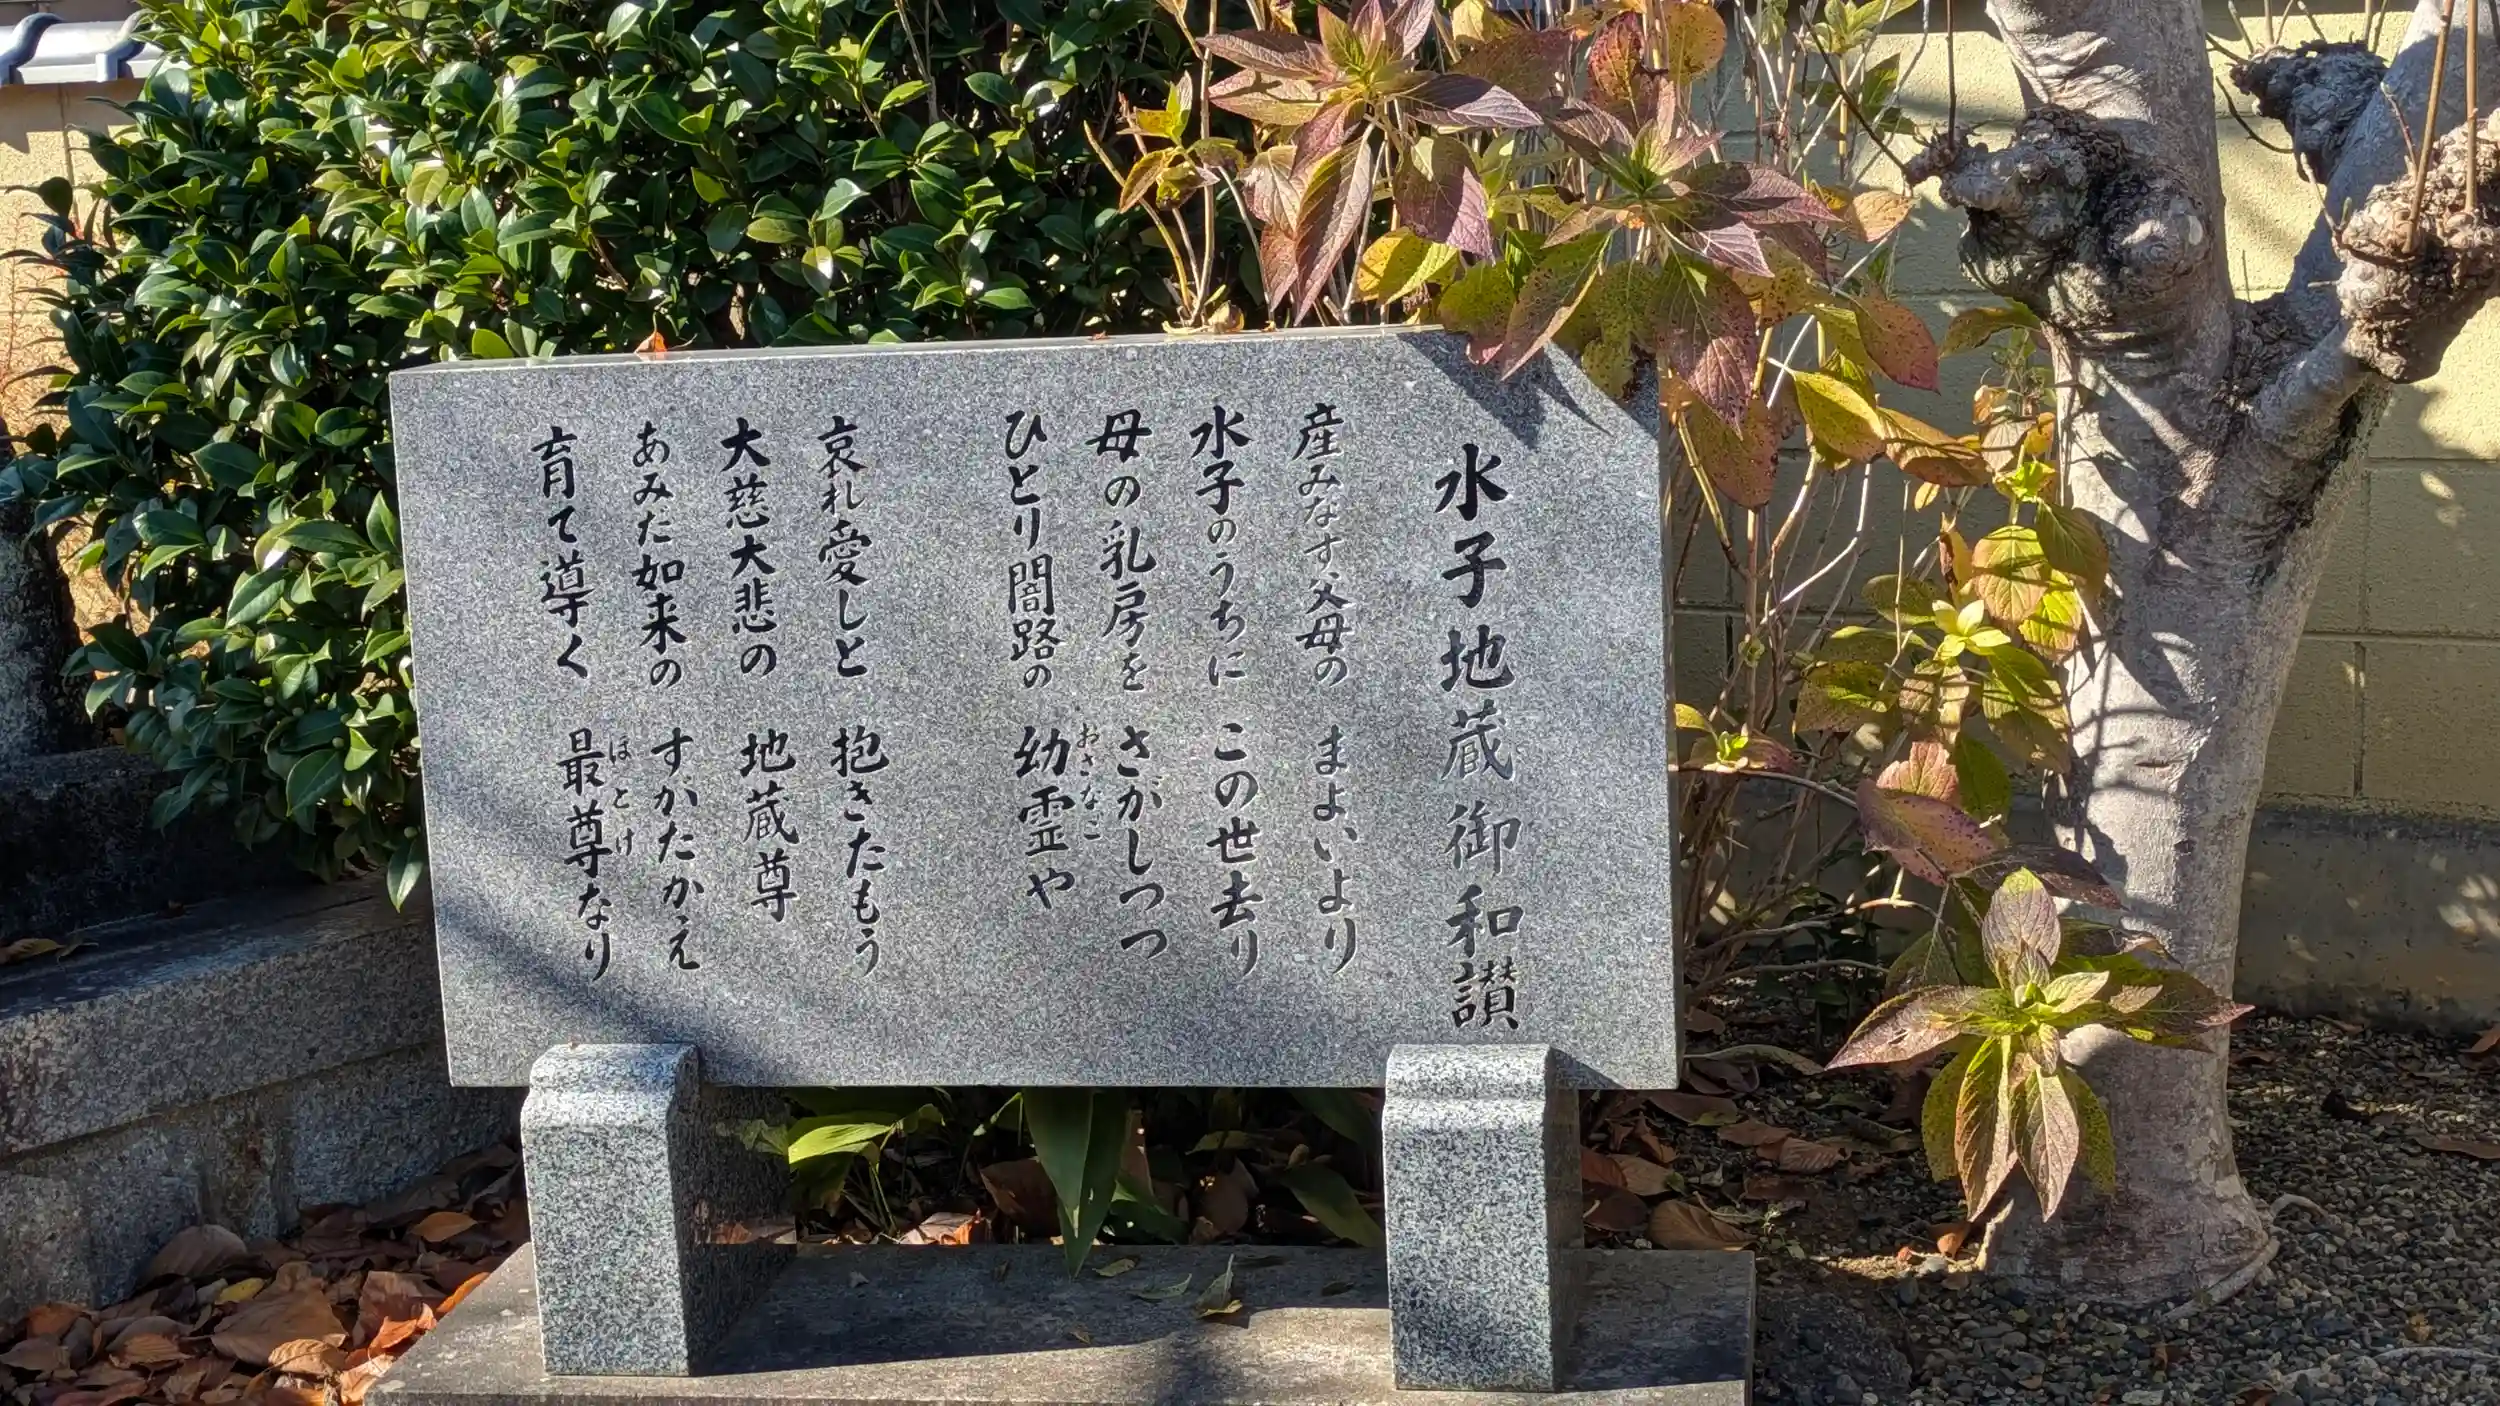 水子地蔵御和讃
産みなす父母の　まよいより
水子のうちに　この世去り
母の乳房を　さがしつつ
ひとり闇路の　幼霊や
おさなご
哀れ愛しと　抱きたもう
大慈大悲の　地蔵尊
あみだ如来の　すがたかえ
育て導く　最尊なり
ほとけ